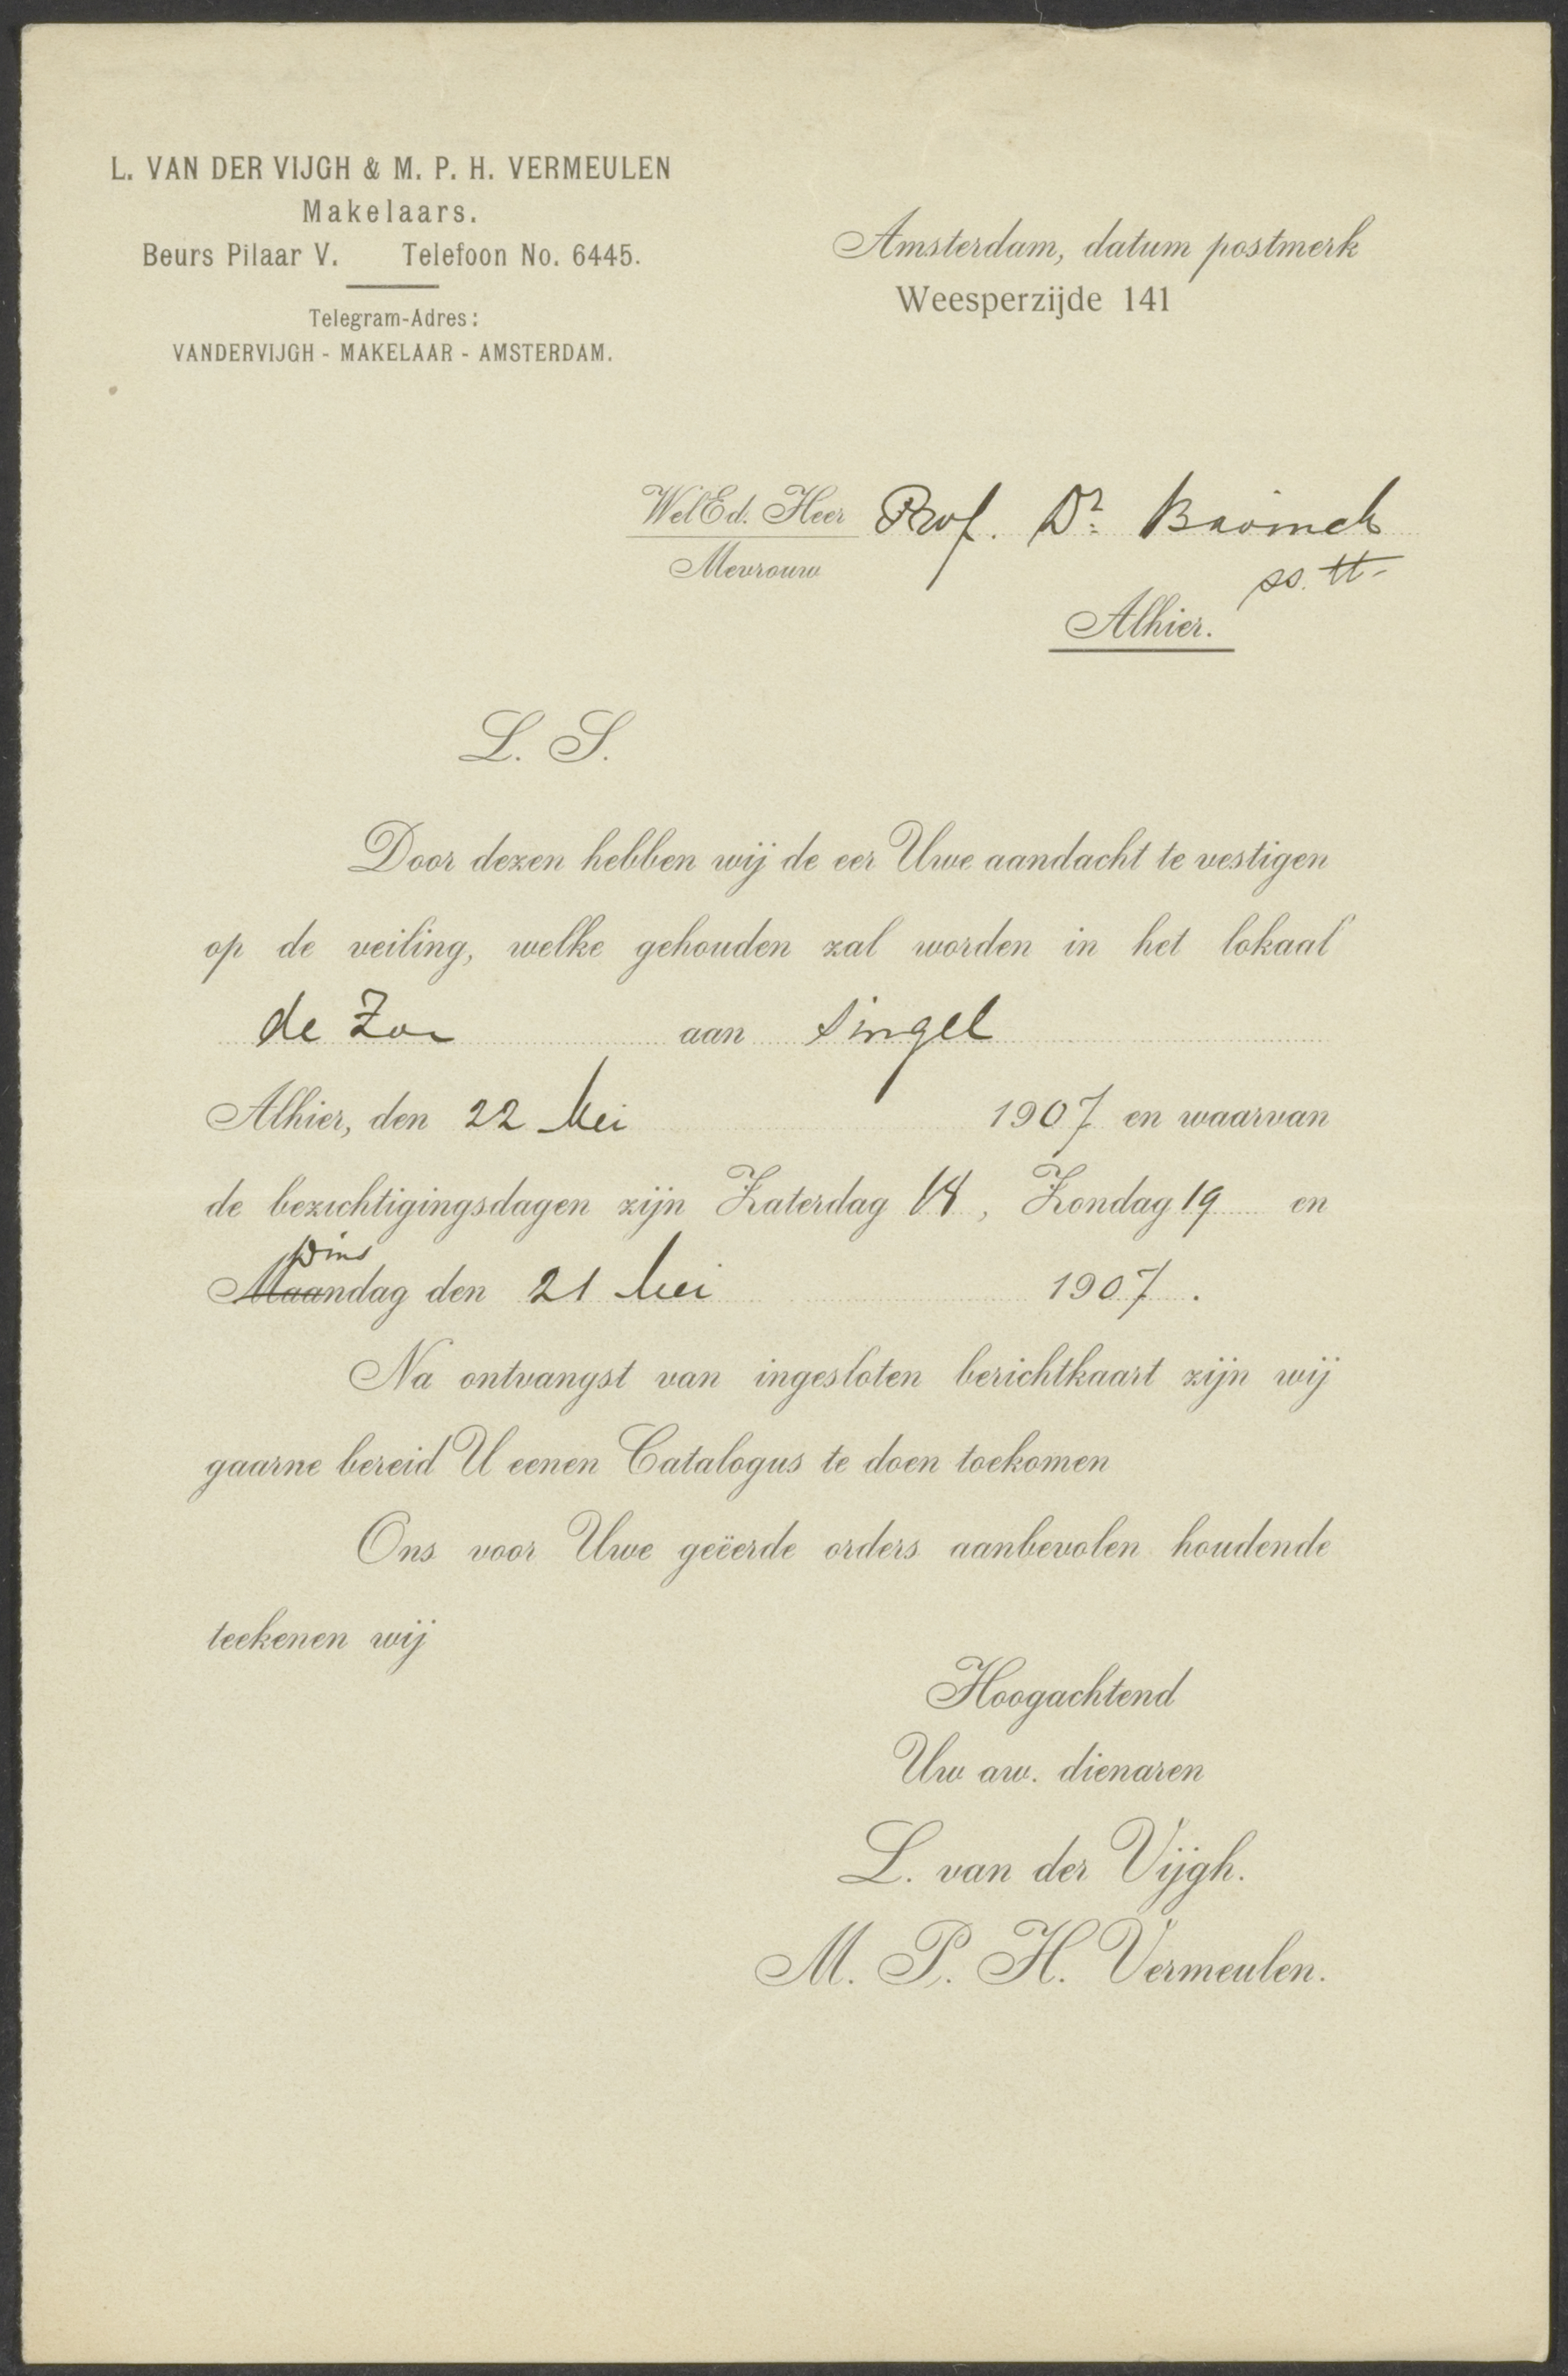 L. VAN DER VIJGH & M. P. H. VERMEULEN
Makelaars.
Beurs Pilaar V. Telefoon No. 6445.
Telegram-Adres:
VANDERVIJGH - MAKELAAR - AMSTERDAM.
Amsterdam, datum postmerk
Weesperzijde 141
WelEd. Heer Prof. Dr.
Mevrouw
Alhier.
L. S.
Door dezen hebben wij de eer Uwe aandacht te vestigen
op de veiling, welke gehouden zal worden in het lokaal
de Zon aan Singel
Alhier, den 22 Mei 1907 en waarvan
de bezichtigingsdagen zijn Zaterdag 18, Zondag 19 en
Dins
Maandag den 21 Mei 1907.
Na ontvangst van ingesloten berichtkaart zijn wij
gaarne bereid U eenen Catalogus te doen toekomen
Ons voor Uwe geëerde orders aanbevolen houdende
teekenen wij
Hoogachtend
Uw aw. dienaren
L. van der Vijgh.
M. P. H. Vermeulen.